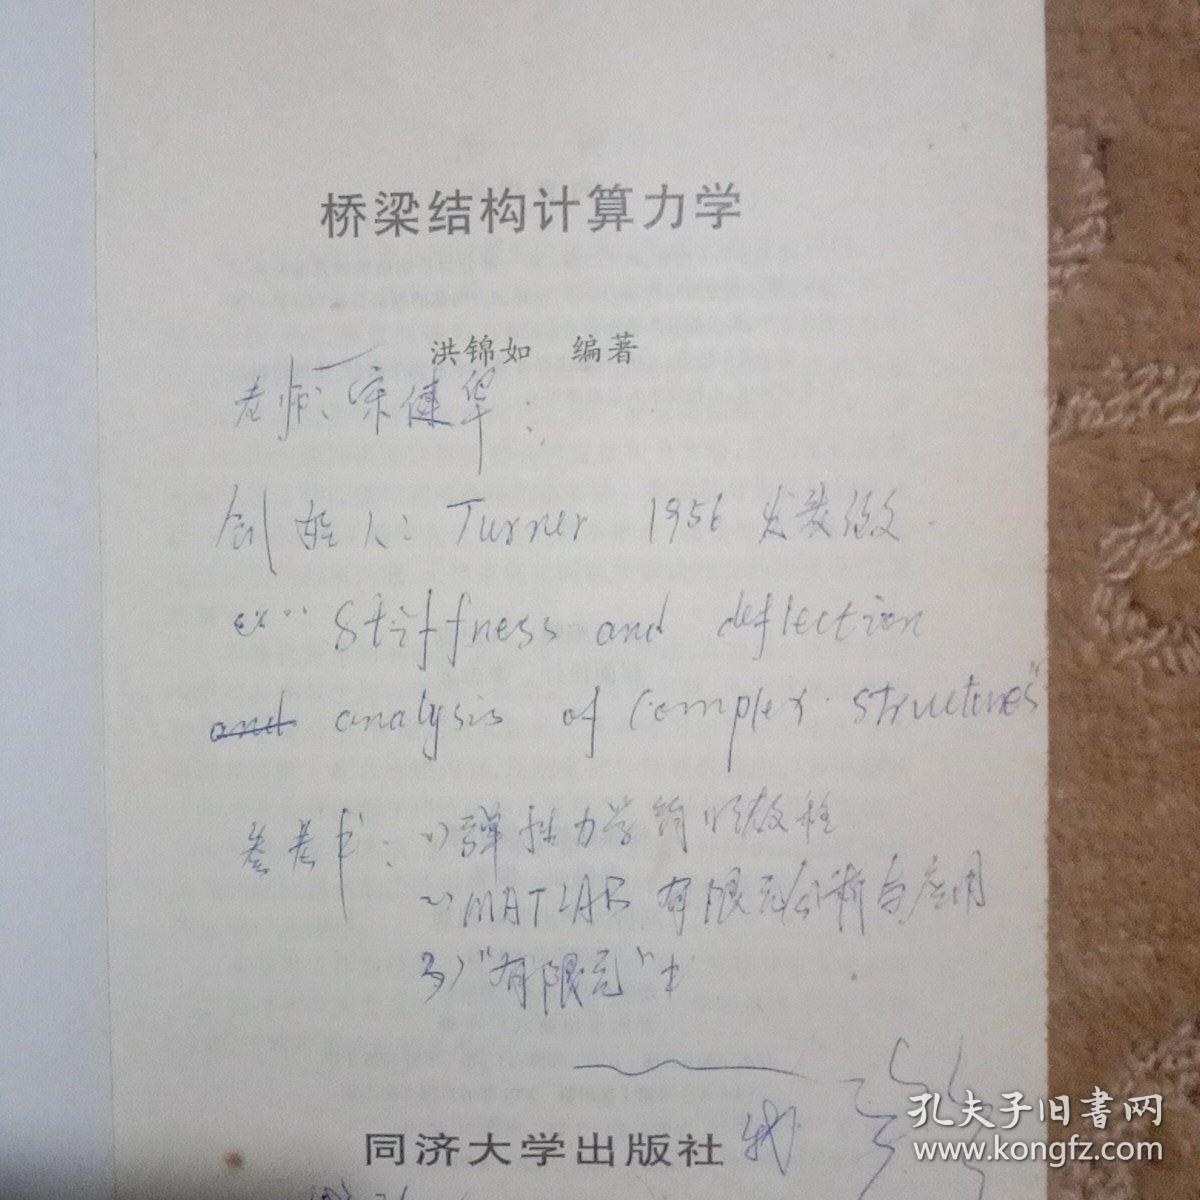 桥梁结构计算力学
洪锦如 编著
老师:宋健华:
创始人: Turner 1956 发表论文
"Stiffness and deflection
and analysis of complex structures"
参考书: 1)弹性力学简明教程
2)MATLAB 有限元分析与应用
3)"有限元"书
同济大学出版社
孔夫子旧书网
www.kongfz.com